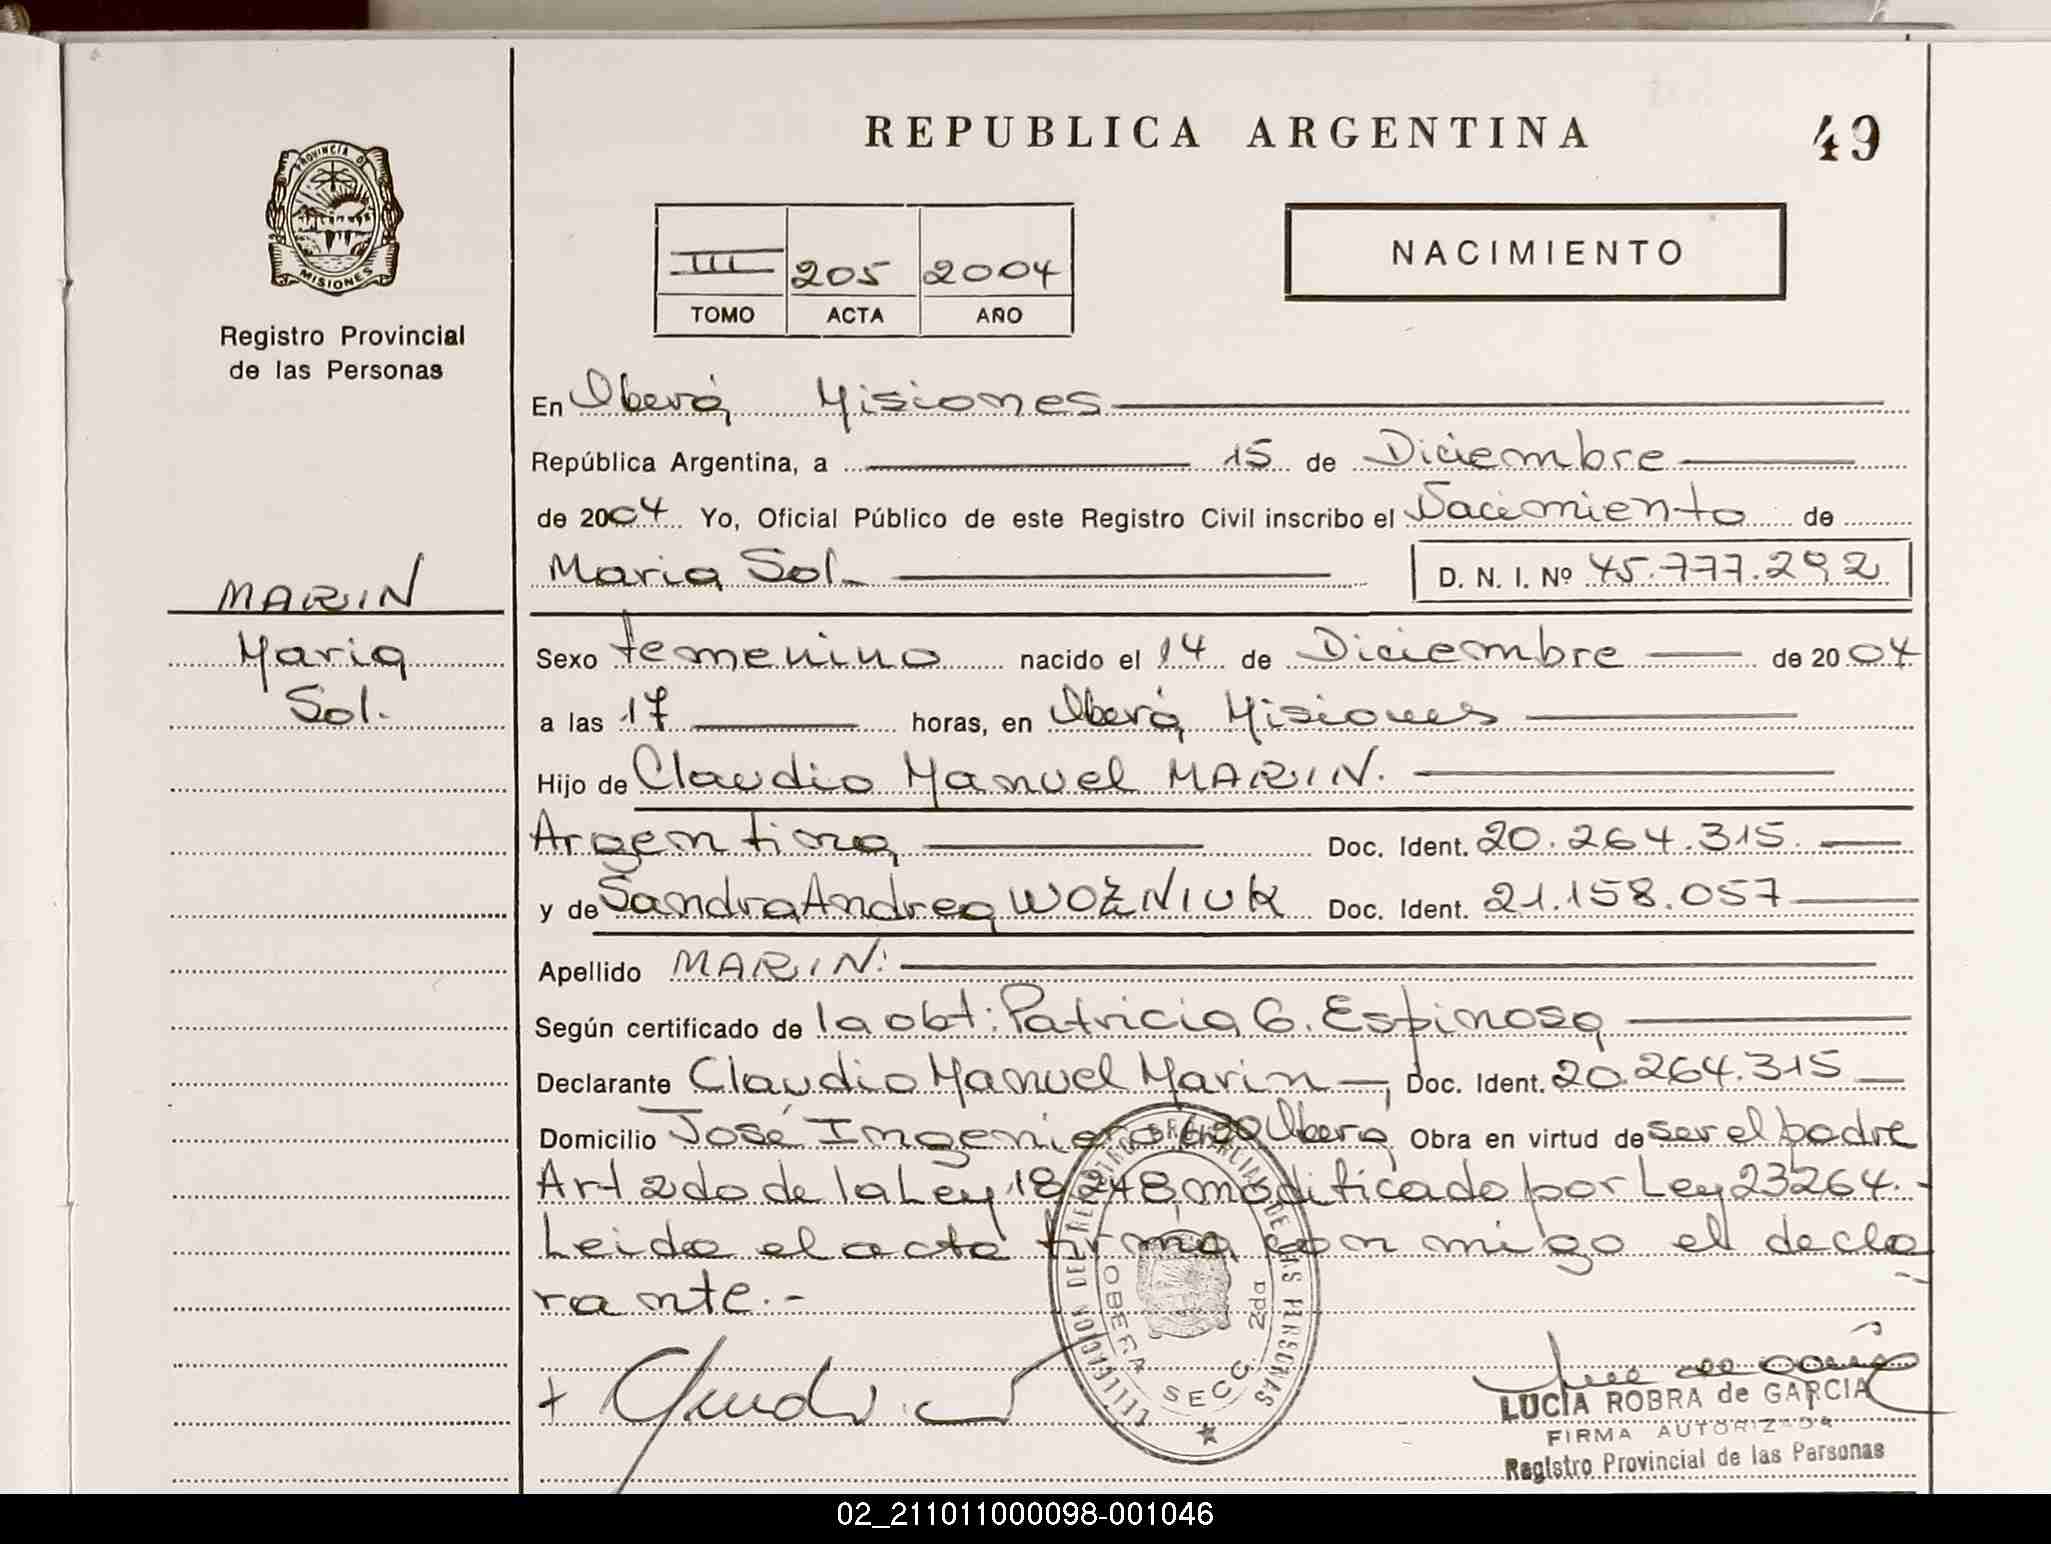 REPUBLICA ARGENTINA
49
PROVINCIA DE
MISIONES
Registro Provincial
de las Personas
III 205 2004
TOMO ACTA AÑO
NACIMIENTO
En Oberá, Misiones
República Argentina, a 15 de Diciembre
de 2004 Yo, Oficial Público de este Registro Civil inscribo el Nacimiento de
Maria Sol. D. N. I. Nº 45.777.292
MARIN
Maria
Sol.
Sexo femenino nacido el 14 de Diciembre de 2004
a las 17 horas, en Oberá, Misiones
Hijo de Claudio Manuel MARIN.
Argentina Doc. Ident. 20.264.315.
y de Sandra Andrea WOZNIUK Doc. Ident. 21.158.057
Apellido MARIN.
Según certificado de la obt: Patricia G. Espinosa
Declarante Claudio Manuel Marin Doc. Ident. 20.264.315
Domicilio José Ingenieros Oberá Obra en virtud de ser el padre
Art 2do de la Ley 18248 modificado por Ley 23264.-
Leida el acta firma con migo el decla
rante.-
DELEGACION DEL REGISTRO PROVINCIAL DE LAS PERSONAS
OBERA SECC. 2da
LUCIA ROBRA de GARCIA
FIRMA AUTORIZADA
Registro Provincial de las Personas
02_211011000098-001046